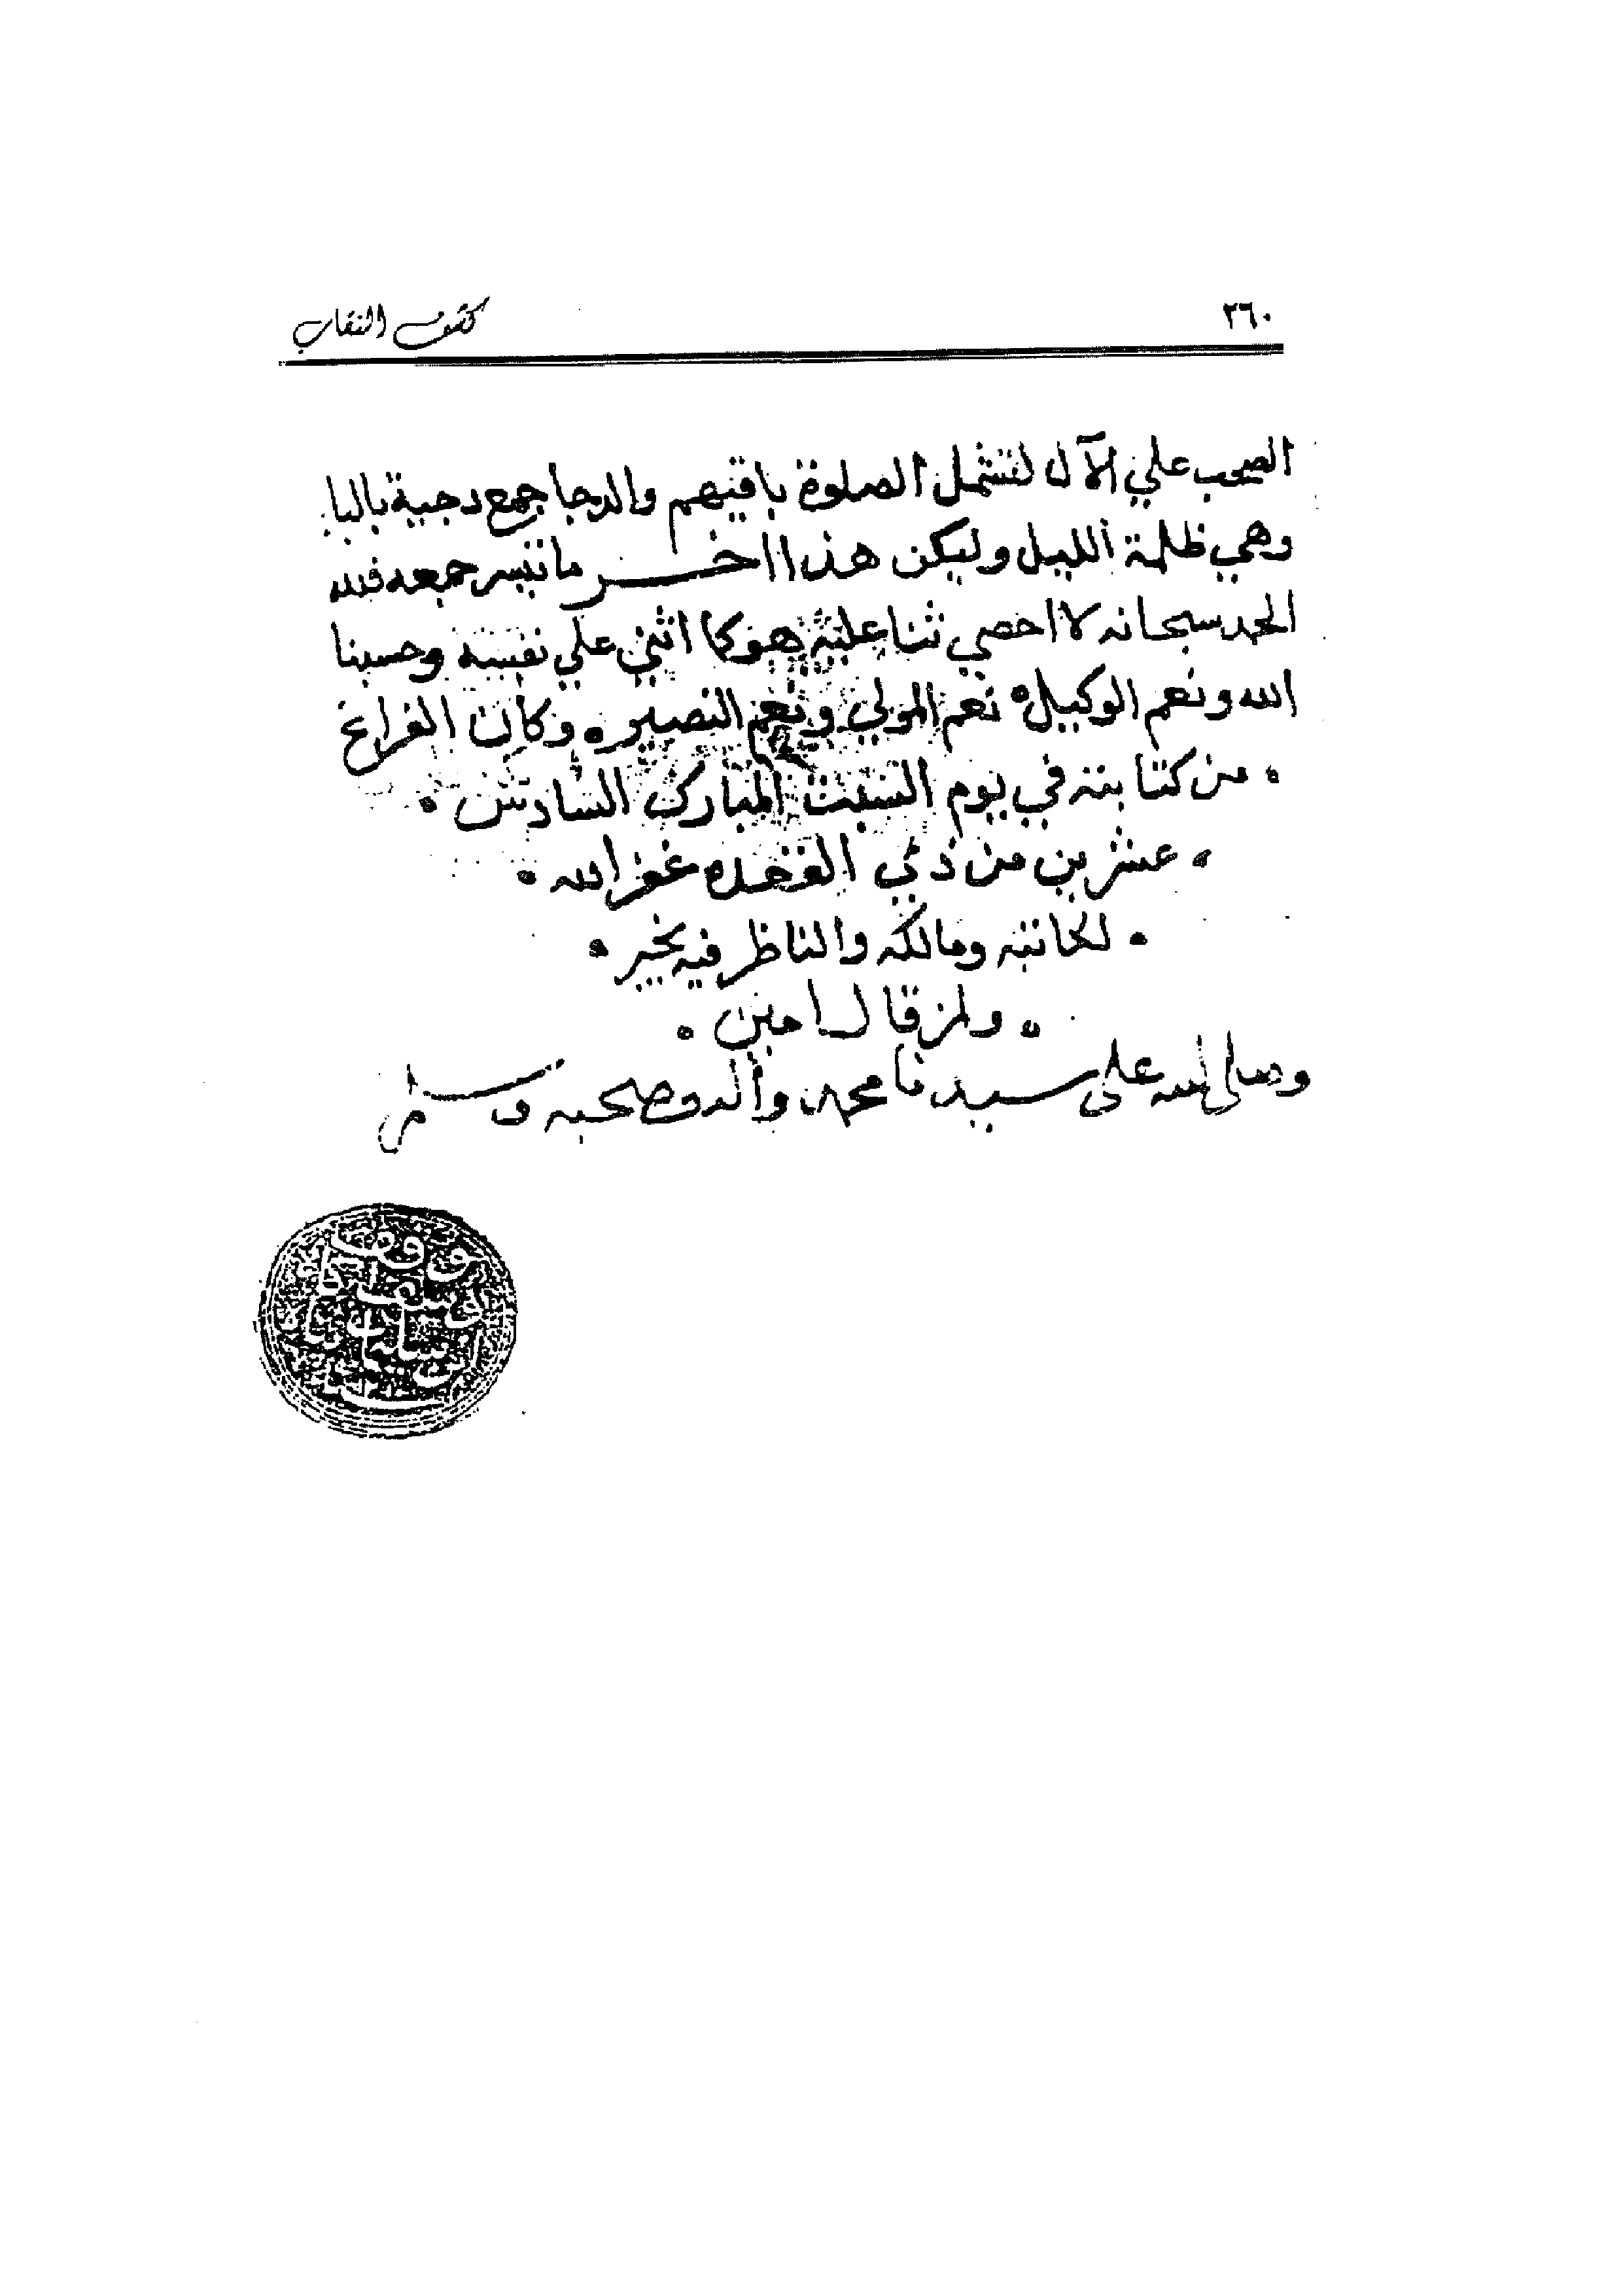 ٣٦٠
كشف النقاب
الصحب علي الآل لتشمل الصلوة باقيهم والدجا جمع دجية بالبا
وهي ظلمة الليل وليكن هذا اخر ما تيسر جمعه فلله
الحمد سبحانه لا احصي ثنا عليه هو كما اثني علي نفسه وحسبنا
الله ونعم الوكيل نعم المولي ونعم النصير وكان الفراغ
من كتابته في يوم السبت المبارك السادس
عشرين من ذي القعده غفر الله
لكاتبه ومالكه والناظر فيه بخير
ولمن قال امين
وصلى الله على سيدنا محمد وآله وصحبه وسلم